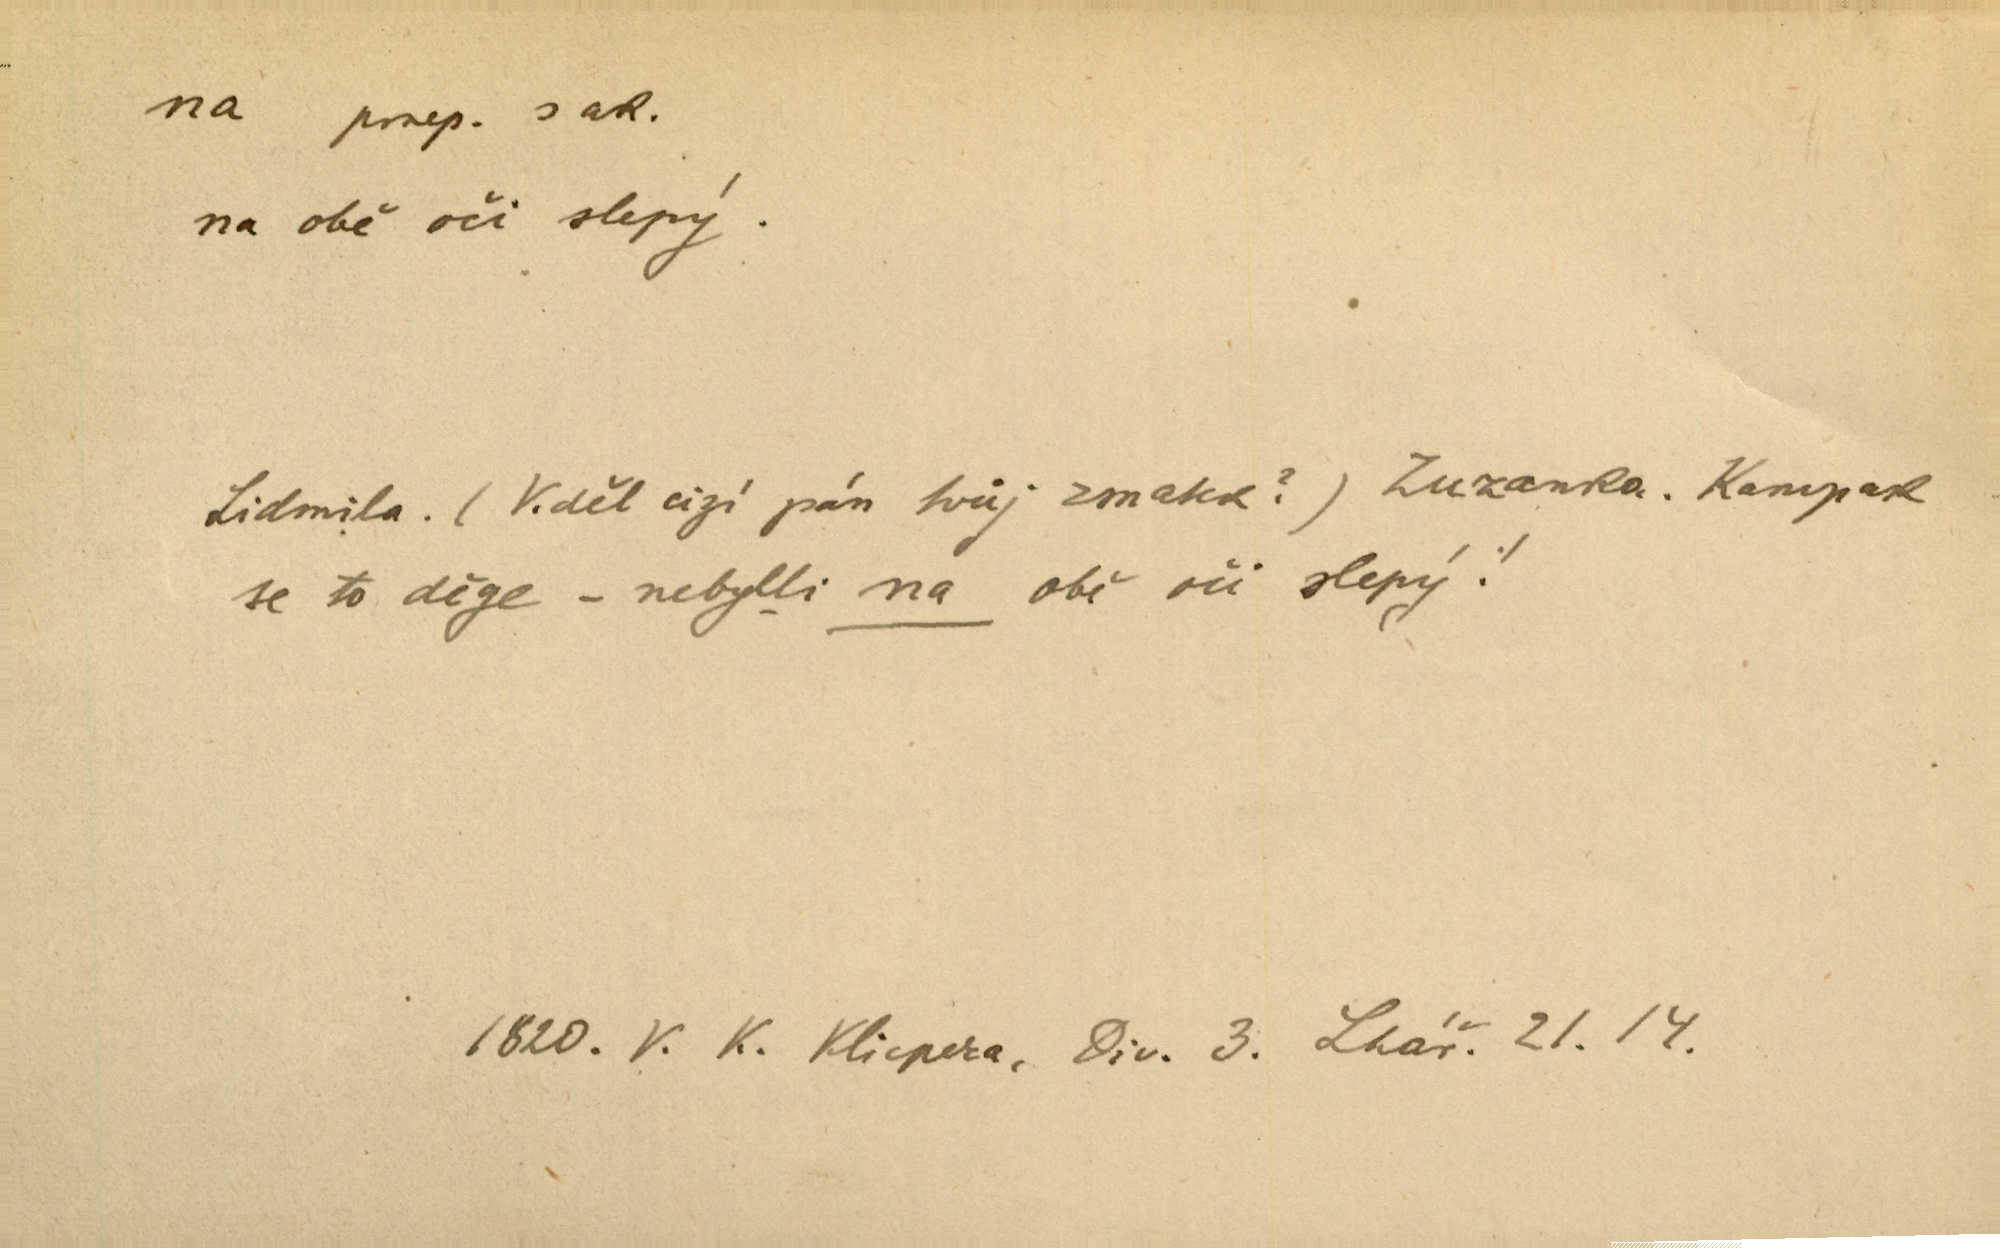 na praep. s ak.
na obě oči slepý.
Lidmila. (Viděl cizí pán tvůj zmatek?) Zuzanka. Kampak
se to děge - nebylli na obě oči slepý!
1820. V. K. Klicpera, Div. 3. Lhář. 21. 14.